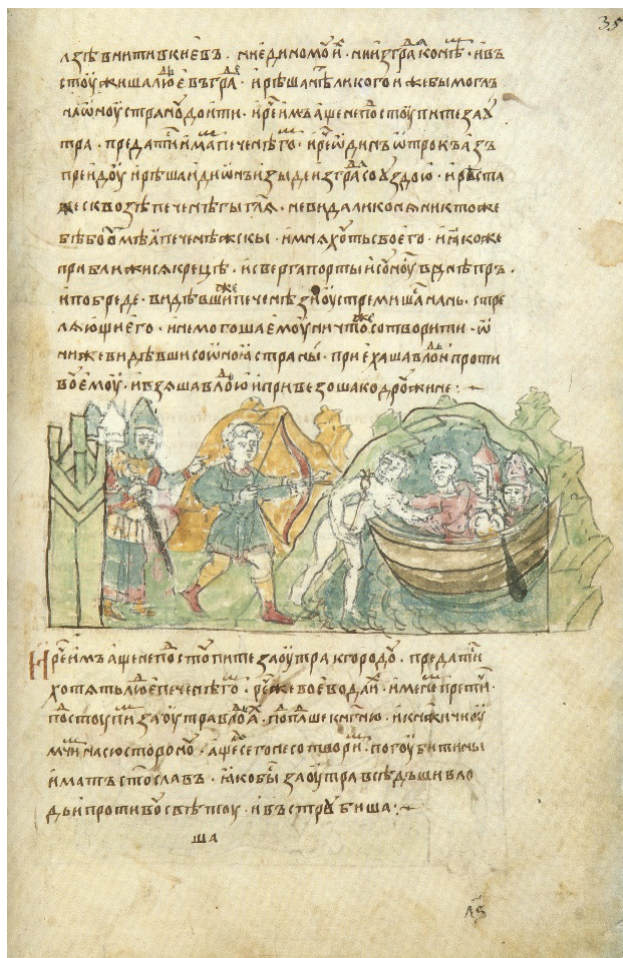 35
лзѣ внити в киевъ · ни единомоⷹ иⷯ · ни изграⷣа к онѣⷨ · и въ
стоужиша люⷣе въ граⷣ · и рѣша нѣⷭ ли кого иже бы моглъ
на ѡноу страноⷹ доити · и реⷱ имъ аще не поⷣстоупите заⷹ
тра · предатиⷭ имаⷨ печенѣгоⷨ · и реⷱ ѡдинъ ѡтрокъ азъ
преидоу и рѣша иди ѡнъ изыде из граⷣ со оуздою · и риста
ше сквозѣ печенѣгы гл҃я · не видѣ ли коня никтоже
бѣ бо оумѣя печенѣжскы · и мняхоуⷮ своего · и яко же
приближися к рецѣ · и сверга порты и соунноуⷭ въ днѣпръ ·
и побреде · видѣвши же печенѣзи оустремишаⷭ на нь · стрѣ
ляюще его · и не могоша емоу ничто же сотворити · ѡ
ни же видѣвши с ѡноя страны · приѣхаша в лоⷣи проти
воⷹ емоу · и взяша в лоⷣю и привезоша к дроужине :
И реⷱ имъ аще не поⷣстоⷹпите заоутра к городоⷹ · предатиⷭ
хотять люⷣе печенѣгоⷨ · реⷱ же воевода иⷯ · именеⷨ претичь ·
поⷣстоупиⷨ заоутра в лоⷣяⷯ · попаⷣше княгиню и княжичи оу
мчиⷨ на сю стороноⷹ · аще сего не сотвориⷨ · погоубити ны
имать ст҃ославъ · яко быⷭ заоутра всѣдъши в ло
дьи противоⷹ свѣтоу · и въстроубиша :
ша